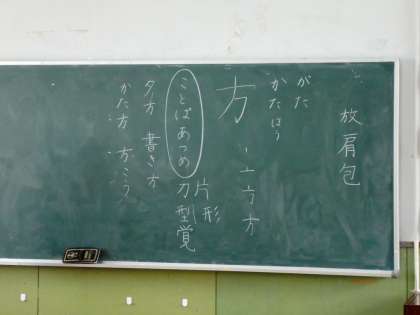 放肩包
がた
かたほう
方 丶亠方方
片形
刀型覚
ことばあつめ
夕方 書き方
かた方 方こう